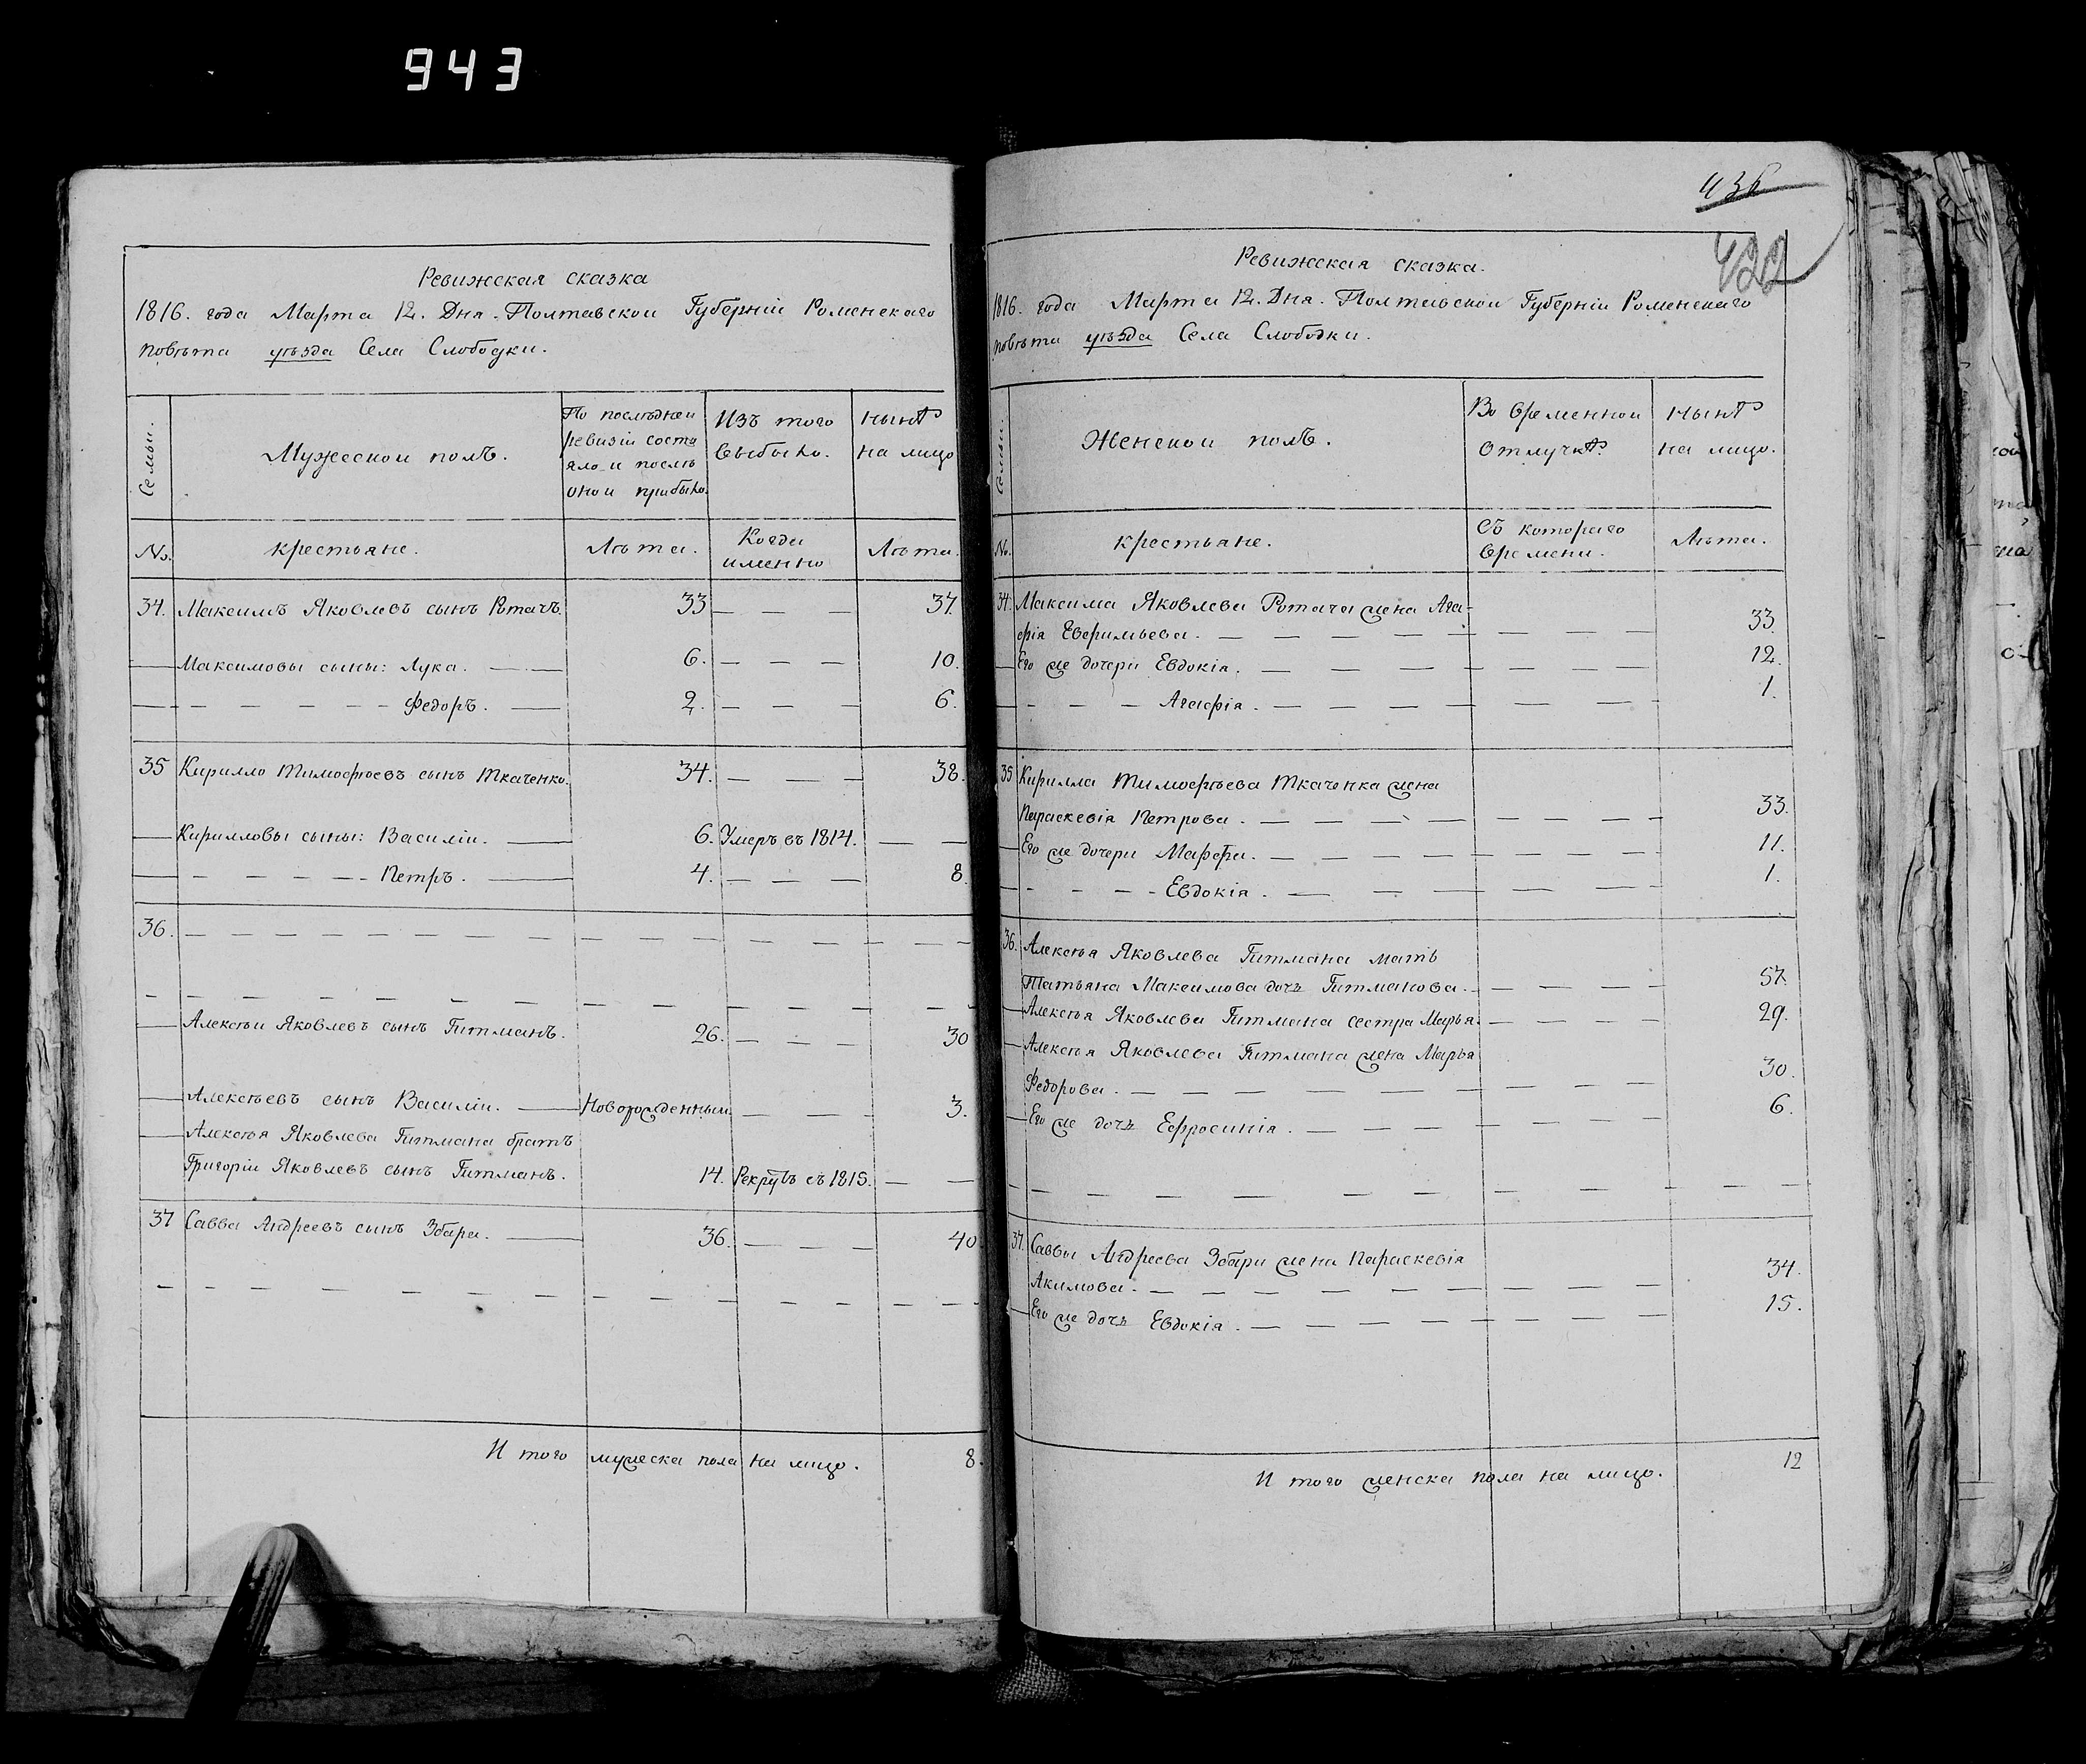 943
Ревижская сказка
1816. года Марта 12. Дня. Полтавской Губерніи Роменскаго
повѣта уѣзда Села Слободки.
Семьи.
Мужеской полъ.
По послѣдней
ревизіи состо
яло и послѣ
оной прибыло.
Изъ того
выбыло.
Нынѣ
на лицо
№.
крестьяне.
Лѣта.
Когда
именно
Лѣта.
34. Максимъ Яковлевъ сынъ Ротачъ. 33 — — — 37.
Максимовы сыны: Лука. 6. — — — 10.
Федоръ. 2. — — — 6.
35 Кирилло Тимофѣевъ сынъ Ткаченко. 34. — — — 38.
Кирилловы сыны: Василій. 6. Умеръ въ 1814. — —
Петръ. 4. — — — 8.
36.
Алексѣй Яковлевъ сынъ Гитманъ. 26. — — — 30
Алексѣевъ сынъ Василій. Новорожденный — — — 3.
Алексѣя Яковлева Гитмана братъ
Григорій Яковлевъ сынъ Гитманъ. 14. Рекрутъ съ 1815. — —
37 Савва Андреевъ сынъ Збара. 36. — — — 40
И того мужеска пола на лицо. 8.
436
422
Ревижская сказка.
1816. года Марта 12. Дня. Полтавской Губерніи Роменскаго
повѣта уѣзда Села Слободки.
Семьи.
Женской полъ.
Во временной
отлучкѣ.
Нынѣ
на лицо.
№.
крестьяне.
Съ котораго
времени.
Лѣта.
34. Максима Яковлева Ротача жена Ага-
фія Евфимьева. 33.
Его же дочери Евдокія. 12.
Агафія. 1.
35 Кирилла Тимофѣева Ткаченка жена
Параскевія Петрова. 33.
Его же дочери Марфа. 11.
Евдокія. 1.
36. Алексѣя Яковлева Гитмана мать
Татьяна Максимова дочь Гитманова. 57.
Алексѣя Яковлева Гитмана сестра Марья. 29.
Алексѣя Яковлева Гитмана жена Марья
Федорова. 30.
Его же дочь Ефросинія. 6.
37. Саввы Андреева Збары жена Параскевія
Акимова. 34.
Его же дочь Евдокія. 15.
И того женска пола на лицо. 12